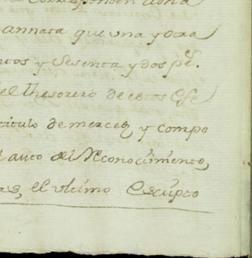 corresponden a una
annata que una y otra
ntos y sesenta y dos ps.
el thesorero de estos
titulo de merced, y compo
l auto del Reconocimiento,
el ultimo Escripto